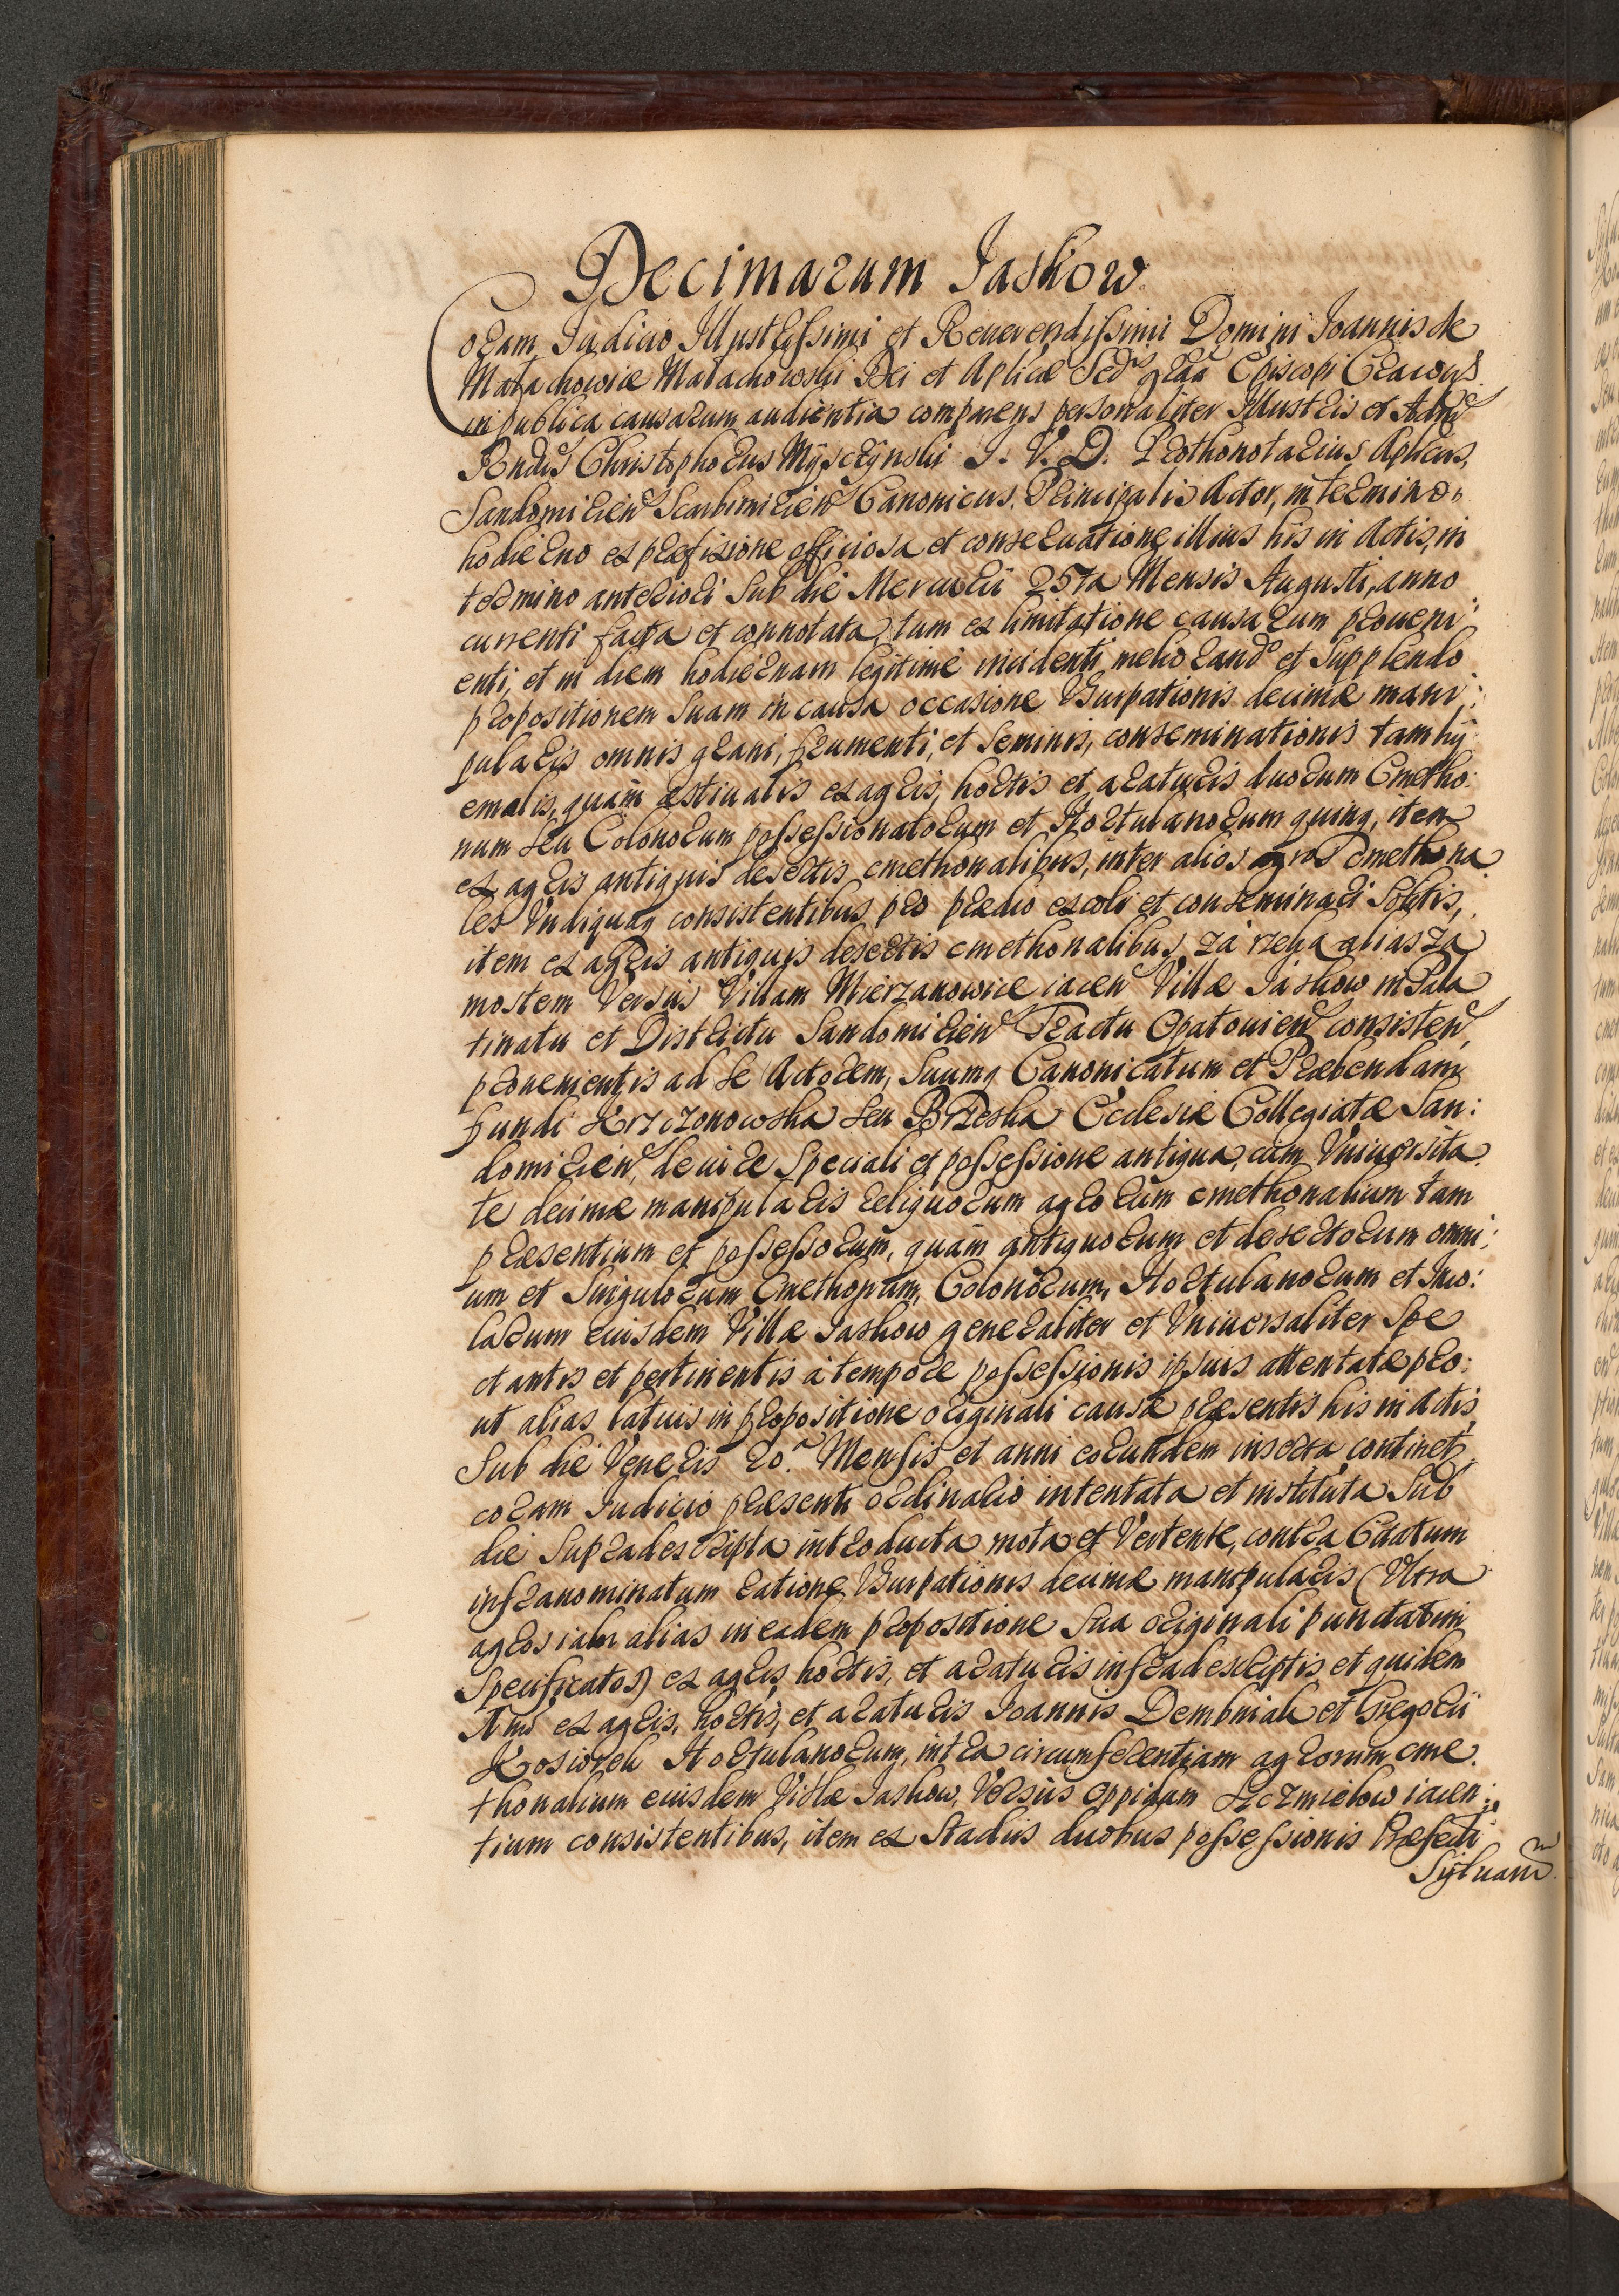 Decimarum Jaskow
Coram Judicio Illustrissimi et Reuerendissimi Domini Joannis de
Małachowice Małachowski Dei et Aplicæ Sed. grãa Episcopi Cracou.
in publica causarum audientia comparens personaliter Illustris et Adm.
Rndus Christophorus Myscÿnski J. V. D. Prothonotarius Aplicus,
Sandomirien. Scarbimirien. Canonicus. Principalis Actor, in termino
hodierno ex præfixione officiosa et conseruatione illius his in Actis, in
termino anteriori sub die Mercurii 25ta Mensis Augusti, anno
currenti facta et connotata, tum ex limitatione causarum proueni:
enti, et in diem hodiernam legitimè incidenti, meliorando et supplendo
propositionem suam in causa occasione Vsurpationis decimæ mani:
pularis omnis grani, frumenti, et seminis, conseminationis tam hÿ:
emalis, quàm æstiualis ex agris, hortis et araturis duorum Cmetho:
num seu Colonorum possessionatorum et Hortulanorum quinq, item
ex agris antiquis desertis cmethonalibus, inter alios agros Cmethona:
les Vndiquaq consistentibus pro prædio excoli et conseminari solitis,
item ex agris antiquis desertis cmethonalibus, za rzeka alias za
mostem Versus Villam Mierzanowice iacen. Villæ Jaskow in Pala
tinatu et Districtu Sandomirien. Tractu Opatouien. consisten.
prouenientis ad se Actorem, suumq Canonicatum et Præbendam
fundi Krzczonowska seu Brzeska Ecclesiæ Collegiatæ San:
domirien. de iure speciali et possessione antiqua, cum Vniuersita
te decimæ manipularis reliquorum agrorum cmethonalium tam
præsentium et possessorum, quàm antiquorum et desertorum omni:
um et singulorum Cmethonum, Colonorum, Hortulanorum et Inco:
larum eiusdem Villæ Jaskow generaliter et Vniuersaliter spe
ctantis et pertinentis à tempore possessionis ipsius attentatæ pro:
ut alias latius in propositione originali causæ præsentis his in Actis,
sub die Veneris 20.a Mensis et anni eorundem inserta continet.
coram Judicio præsenti ordinario intentata et instituta sub
die supradescripta introducta mota et Vertente, contra Citatum
infranominatum ratione Vsurpationis decimæ manipularis (Vltra
agros iam alias in eadem propositione sua originali punctatim
specificatos) ex agris, hortis, et araturis infradescriptis et quidem
Imo ex agris, hortis, et araturis Joannis Dembniak et Gregorii
Kosiorek Hortulanorum, intra circumferentiam agrorum cme:
thonalium eiusdem Villæ Jaskow, Versus oppidum Szczmielow iacen:
tium consistentibus, item ex stadiis duobus possessionis Præfecti
Syluarum